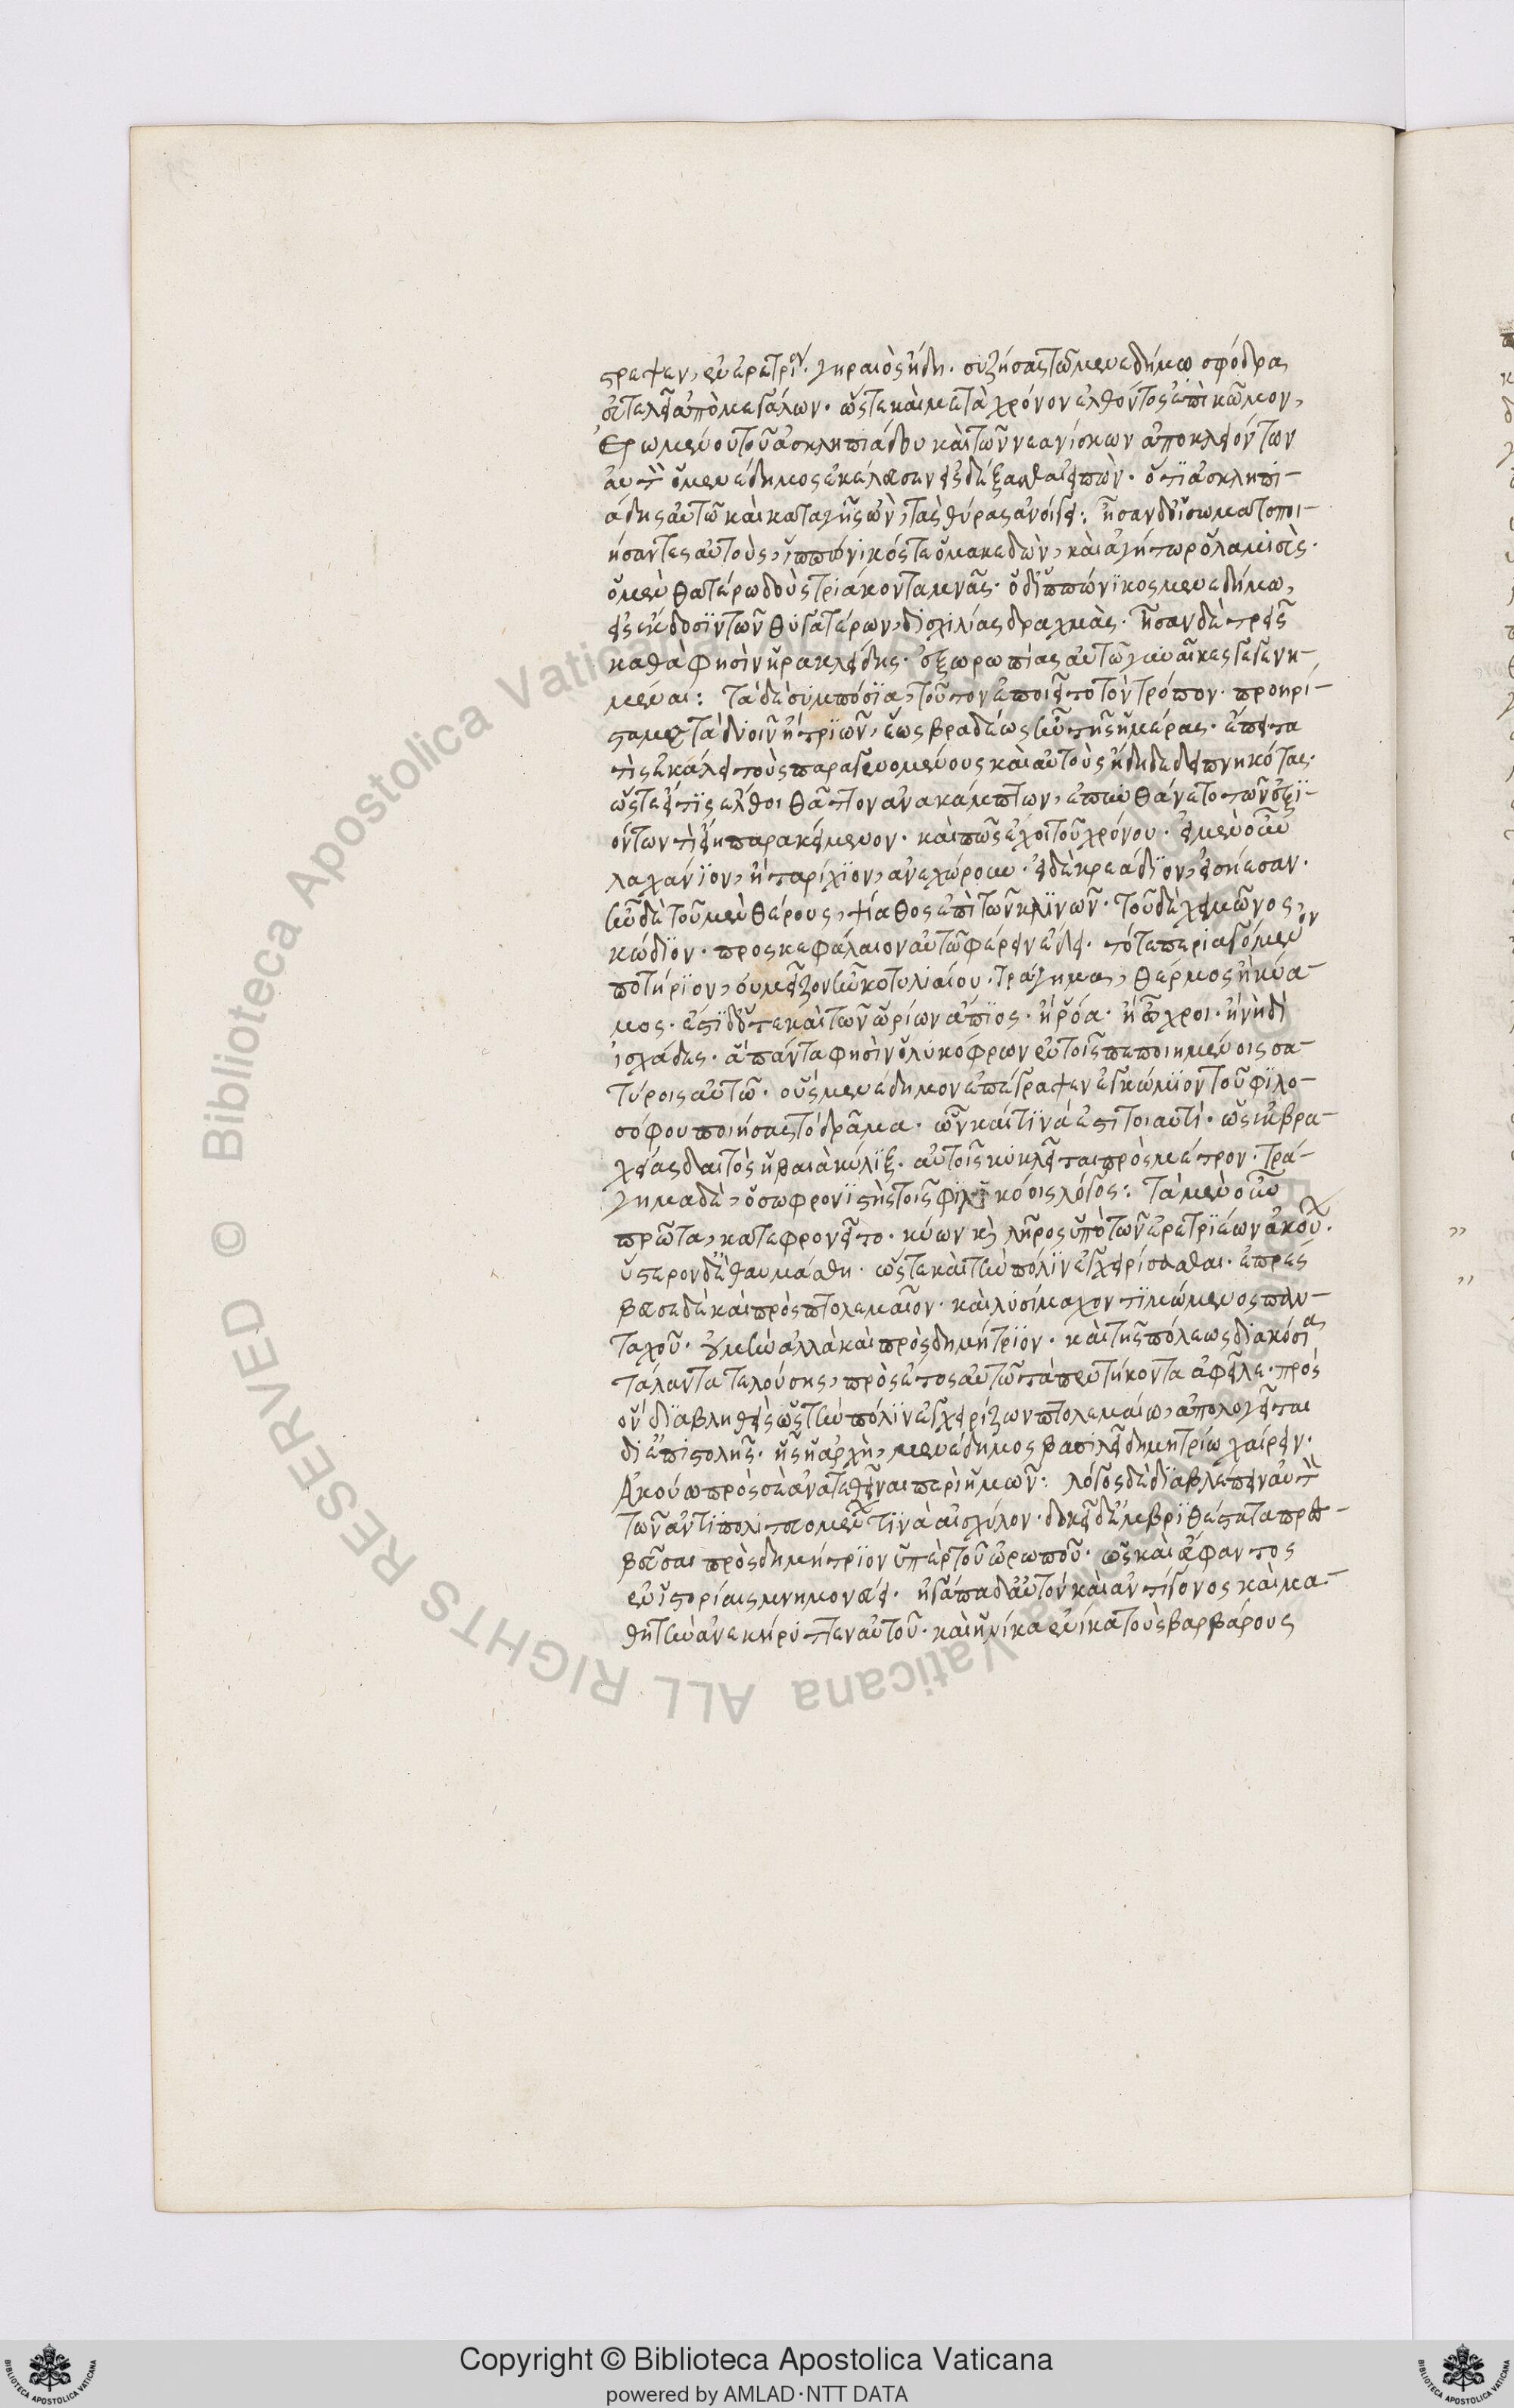 στρεψεν, ἐν ἐρετρί· γηραιὸς ἤδη· συζήσας τῶ μενεδήμω σφόδρα
εὐτελεῖ ἀπὸ μεγάλων· ὥστε καὶ μετὰ χρόνον ἐλθόντος ἐπὶ κῶμον,
ἐρωμένου τοῦ ἀσκληπιάδου καὶ τῶν νεανίσκων ἀποκλειόντων
αὐτὸν ὁ μενέδημος ἐκέλευσεν εἰσδέξασθαι εἰπὼν· ὅτι ἀσκληπι-
άδης αὐτῶ καὶ κατὰ γῆς ὢν, τὰς θύρας ἀνοίγει: ἦσαν δὲ οἱ σωματοποι-
ήσαντες αὐτοὺς, ἱππόνικός τε ὁ μακεδὼν, καὶ ἀγήτωρ ὁ λαμιεύς·
ὁ μὲν θατέρω δοὺς τριάκοντα μνᾶς· ὁ δὲ ἱππόνικος μενεδήμω,
εἰς ἔκδοσιν τῶν θυγατέρων, δισχιλίας δραχμὰς· ἦσαν δὲ τρεῖς
καθὰ φησὶν ἡρακλείδης· ἐξ ὠρωπίας αὐτῶ γυναῖκες γεγενη-
μέναι: τὰ δὲ συμπόσια, τοῦτον ἐποιεῖτο τὸν τρόπον· προηρί-
στα μετὰ δυοῖν ἢ τριῶν, ἕως βραδέως ἦν τῆς ἡμέρας· ἔπειτα
τὶς ἐκάλει τοὺς παραγενομένους καὶ αὐτοὺς ἤδη δεδειπνηκότας·
ὥστε εἴ τις ἔλθοι θᾶττον ἀνακάμπτων, ἐπυνθάνετο τῶν ἐξι-
όντων τί εἴη παρακείμενον· καὶ πῶς ἔχοι τοῦ χρόνου· εἰ μὲν οὖν
λαχάνιον, ἢ ταρίχιον, ἀνεχώρουν· εἰ δὲ κρεάδιον, εἰσήεσαν·
ἦν δὲ τοῦ μὲν θέρους, ψίαθος ἐπὶ τῶν κλινῶν· τοῦ δὲ χειμῶνος,
κώδιον· προσκεφάλαιον αὐτῶ φέρειν ἔδει· τό τε περιαγόμενον
ποτήριον, οὐ μεῖζον ἦν κοτυλιαίου· τράγημα, θέρμος ἢ κύα-
μος· ἔστι δ' ὅτε καὶ τῶν ὡρίων ἄπιος· ἢ ῥόα· ἢ ὦχροι· ἢ νὴ δί
ἰσχάδες· ἃ πάντα φησὶν ὁ λυκόφρων ἐν τοῖς πεποιημένοις σα-
τύροις αὐτῶ· οὓς μενέδημον ἐπέγραψεν ἐγκώμιον τοῦ φιλο-
σόφου ποιήσας τὸ δρᾶμα· ὧν καί τινά ἐστι τοιαυτί· ὡς ἐκ βρα-
χείας δαιτὸς ἡ βαιὰ κύλιξ· αὐτοῖς κυκλεῖται πρὸς μέτρον· τρά-
γημα δὲ, ὁ σωφρονιστὴς τοῖς φιληκόοις λόγος: τὰ μὲν οὖν
πρῶτα, κατεφρονεῖτο· κύων κὶ λῆρος ὑπὸ τῶν ἐρετριέων ἀκού·
ὕστερον δὲ ἐθαυμάσθη· ὥστε καὶ τὴν πόλιν ἐγχειρίσασθαι· ἐπρέσ
βευσε δὲ καὶ πρὸς πτολεμαῖον· καὶ λυσίμαχον τιμώμενος παν-
ταχοῦ· οὐ μὴν ἀλλὰ καὶ πρὸς δημήτριον· καὶ τῆς πόλεως διακόσια
τάλαντα τελούσης, πρὸς ἔτος αὐτῶ τὰ πεντήκοντα ἀφεῖλε· πρὸς
ὃν διαβληθεὶς ὡς τὴν πόλιν ἐγχειρίζων πτολεμαίω, ἀπολογεῖται
δι' ἐπιστολῆς· ἧς ἡ ἀρχὴ, μενέδημος βασιλεῖ δημητρίω χαίρειν·
Ἀκούω πρὸς σὲ ἀνατεθῆναι περὶ ἡμῶν: λόγος δὲ διαβλέπειν αὐτὸν
τῶν ἀντιπολιτευομένων τινὰ αἰσχύλον· δοκεῖ δ' ἐμβριθέστατα πρεσ-
βεῦσαι πρὸς δημήτριον ὑπὲρ τοῦ ὠρωποῦ· ὡς καὶ εὔφαντος
ἐν ἱστορίαις μνημονεύει· ἠγάπα δ' αὐτὸν καὶ ἀντίγονος καὶ μα-
θητὴν ἀνεκήρυττεν αὐτοῦ· καὶ ἡνίκα ἐνίκα τοὺς βαρβάρους
Copyright © Biblioteca Apostolica Vaticana
powered by AMLAD·NTT DATA